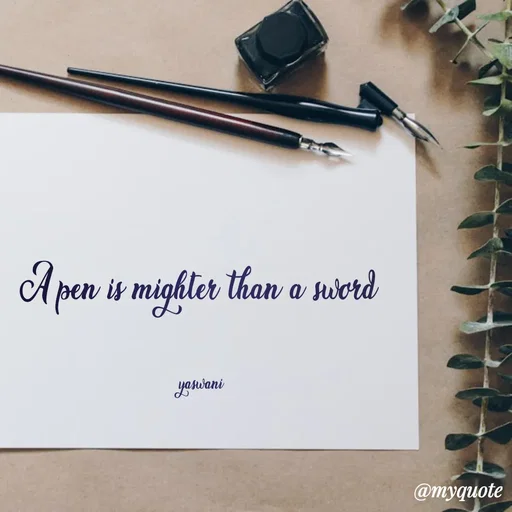 A pen is mighter than a sword
yaswani
@myquote